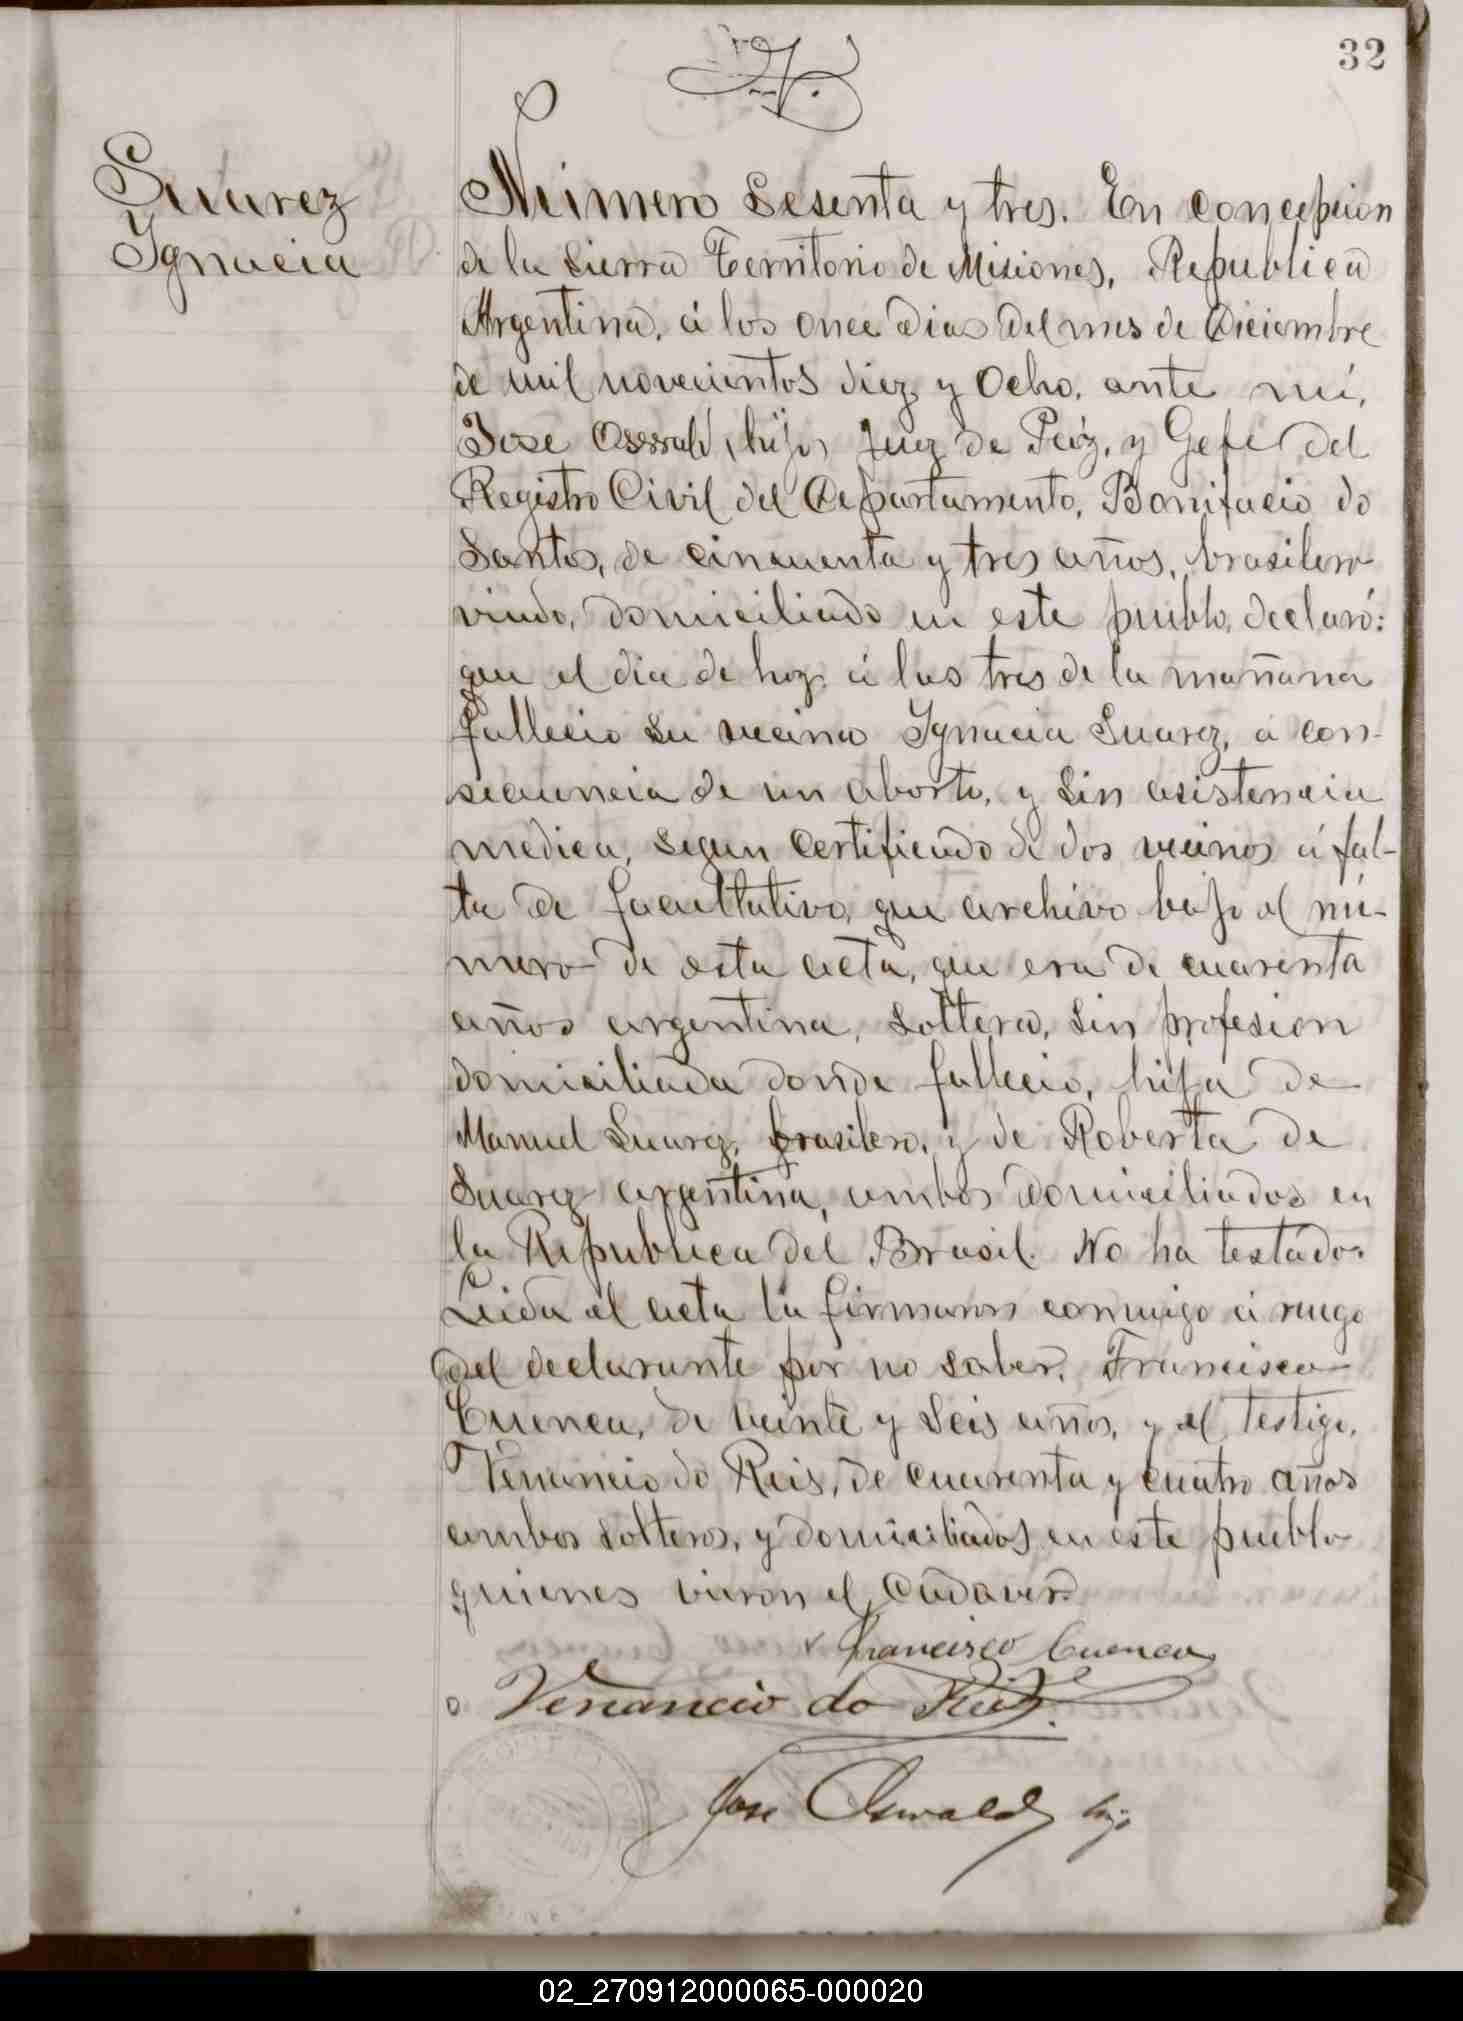 32
Suarez
Ignacia
Número Sesenta y tres. En Concepcion
de la Sierra Territorio de Misiones, Republica
Argentina, á los once dias del mes de Diciembre
de mil novecientos diez y ocho, ante mí,
Jose Oswald, hijo, Juez de Paz, y Gefe del
Registro Civil del Departamento, Bonifacio do
Santos, de cincuenta y tres años, brasilero
viudo, domiciliado en este pueblo, declaró:
que el dia de hoy á las tres de la mañana
fallecio su vecina Ignacia Suarez, á con-
secuencia de un aborto, y sin asistencia
medica, segun certificado de dos vecinos á fal-
ta de facultativo, que archivo bajo el nú-
mero de esta acta, que era de cuarenta
años argentina, soltera, sin profesion
domiciliada donde fallecio, hija de
Manuel Suarez, brasilero, y de Roberta de
Suarez argentina, ambos domiciliados en
la Republica del Brasil. No ha testado.
Leida el acta la firmaron conmigo á ruego
del declarante por no saber, Francisco
Cuenca, de veinte y seis años, y el testigo,
Venancio do Reis, de cuarenta y cuatro años
ambos solteros, y domiciliados en este pueblo
quienes vieron el cadaver.
Francisco Cuenca
Venancio do Reis.
Jose Oswald hijo
02_270912000065-000020